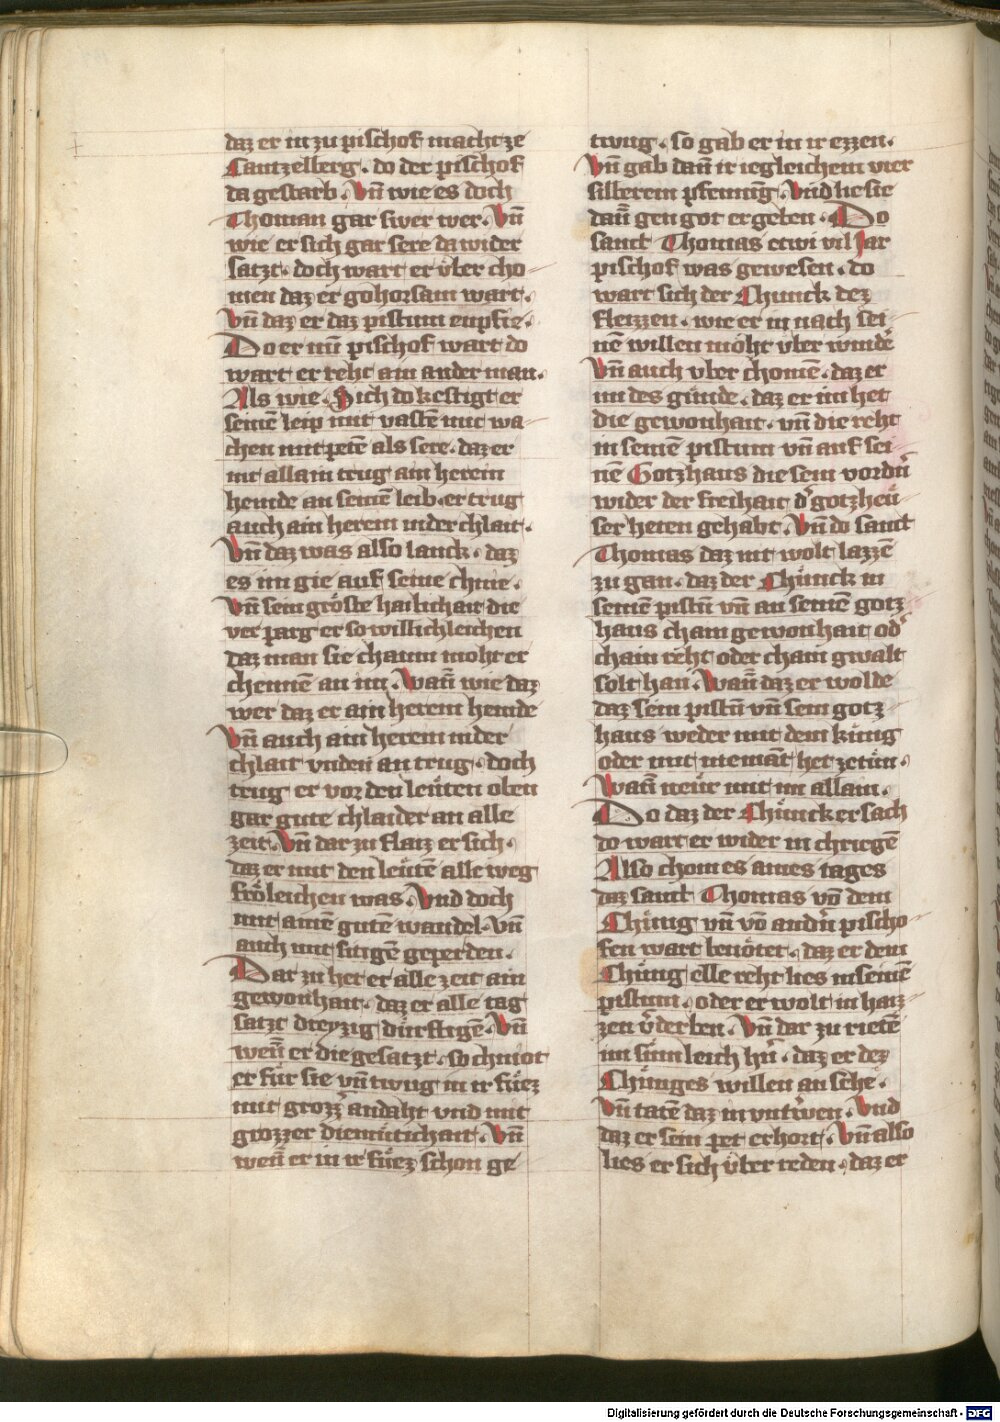 daz er in zu pischof macht ze
Cantzelberg. do der pischof
da gestarb. Vn̄ wie es doch
Thoman gar swer wer. Vn̄
wie er sich gar sere da wider
satzt. doch wart er v̈ber cho-
men daz er gohorsam wart.
Vn̄ daz er daz pistum enpfie.
Do er nu̅ pischof wart do
wart er reht ain ander man.
Als wie. Sich do kestigt er
seine̅ leip mit vaste̅ mit wa-
chen mit pete̅ als sere. daz er
nit allain trug ain herein
hemde an seine̅ leib. er trug
auch ain herein niderchlait.
Vn̄ daz was also lanck. daz
es im gie auf seine chnie.
Vn̄ sein gröste hailichait die
verparg er so willichleichen
daz man sie chaum moht er
chenne̅ an im. Wan̄ wie daz
wer daz er ain herein hemde
Vn̄ auch ain herein nider
chlait vnden an trug. doch
trug er vor den leüten oben
gar gute chlaider an alle
zeit. Vn̄ dar zu flaiz er sich.
daz er mit den leüte̅ alle weg
fröleichen was. Vnd doch
mit aine̅ gute̅ wandel. Vn̄
auch mit sitige̅ geperden.
Dar zu het er alle zeit ain
gewonhait. daz er alle tag
satzt dreyzig dürftige̅. Vn̄
wen̄ er die gesatzt. so chniot
er für sie vn̄ twug in ir füez
mit grozz᷑ andaht vnd mit
grozzer diemütichait. Vn̄
wen̄ er in ir füez schon ge
twug. so gab er in ir ezzen.
Vn̄ gab dan̄ ir iegleichem vier
silberein pfenni̅g. Vnd lie sie
dan̄ gen got ergeben. Do
sanct Thomas etwi vil Jar
pischof was gewesen. do
wart sich der Chunck dez
fleizzen. wie er in nach sei-
ne̅ willen möht v̈ber winde᷑
Vn̄ auch vber chome̅. daz er
im des günde. daz er im het
die gewonhait. vn̄ die reht
in seine̅ pistum vn̄ auf sei
ne̅ Gotzhaus die sein vord᷑n̄
wider der freihait d᷑ gotzheü
ser heten gehabt. Vn̄ do sanct
Thomas daz nit wolt lazze̅
zu gan. daz der Chünck in
seine̅ pistu̅ vn̄ an seine̅ gotz
haus chain gewonhait od᷑
chain reht oder chain gwalt
solt han. Wan̄ daz er wolde
daz sein pistu̅ vn̄ sein gotz
haus weder mit dem küng
oder mit niema̅t het zetün.
Wan̄ neür mit im allain.
Do daz der Chünck er sach
do wart er wider in chriege̅
Also chom es aines tages
daz sanct Thomas vo̅ dem
Chünig vn̄ vo̅ and᷑n pischo-
fen wart benötet. daz er dem
Chünig elle reht lies in seine̅
pistum. oder er wolt in haiz-
zen v᷑derben. Vn̄ dar zu riete̅
im sümleich h᷑n. daz er dez
Chüniges willen an sehe.
Vn̄ tate̅ daz in vntr᷑wen. Vnd
daz er sein pet erhort. Vn̄ also
lies er sich v̈ber reden. daz er
Digitalisierung gefördert durch die Deutsche Forschungsgemeinschaft - DFG